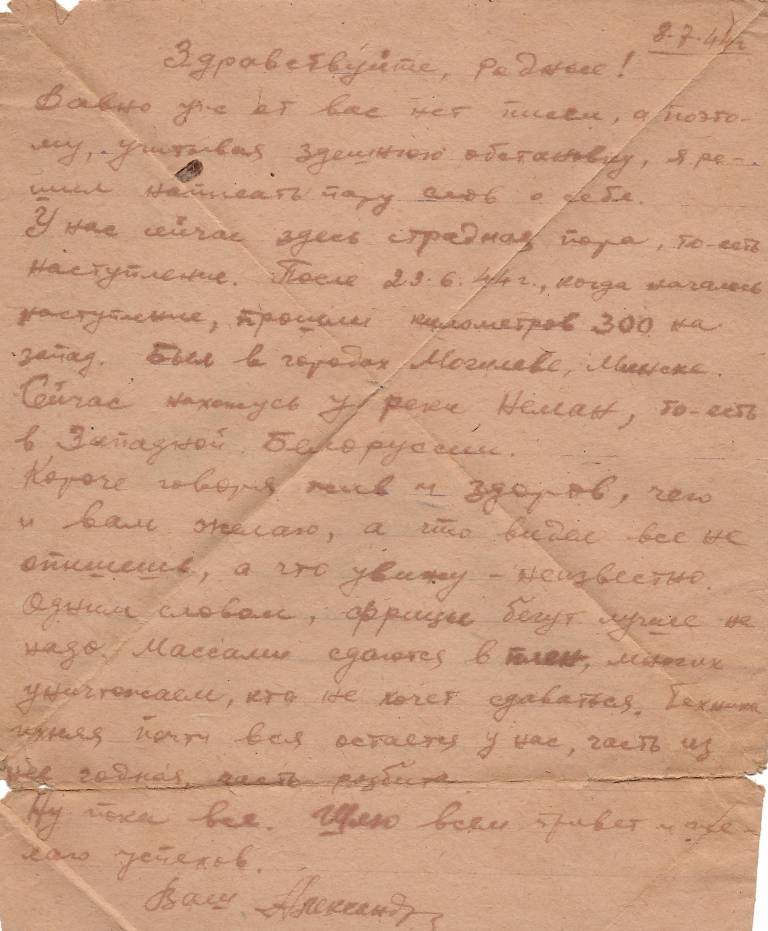 8.7.44г
Здравствуйте, родные!
Давно уже от вас нет писем, а поэто-
му, учитывая здешнюю обстановку, я ре-
шил написать пару слов о себе.
У нас сейчас здесь страдная пора, то-есть
наступление. После 23.6.44г., когда началось
наступление, прошли километров 300 на
запад. Был в городах Могилеве, Минске.
Сейчас нахожусь у реки Неман, то-есть
в Западной Белоруссии.
Короче говоря жив и здоров, чего
и вам желаю, а что видел все не
опишешь, а что увижу - неизвестно.
Одним словом, фрицы бегут лучше не
надо. Массами сдаются в плен, многих
уничтожаем, кто не хочет сдаваться. Техника
ихняя почти вся остается у нас, часть из
нее годная, часть разбита.
Ну пока все. Шлю всем привет и же-
лаю успехов.
Ваш Александр